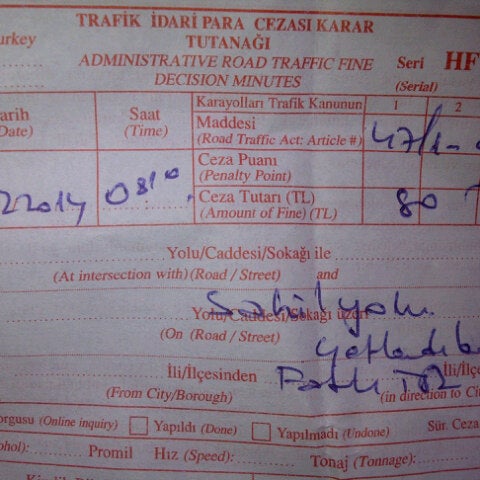 TRAFİK İDARİ PARA CEZASI KARAR
TUTANAĞI
urkey
ADMINISTRATIVE ROAD TRAFFIC FINE
DECISION MINUTES
Seri HF
(Serial)
arih
Date)
Saat
(Time)
Karayolları Trafik Kanunun 1 2
Maddesi
(Road Traffic Act: Article #)
47/1-
Ceza Puanı
(Penalty Point)
22014 0810
Ceza Tutarı (TL)
(Amount of Fine) (TL)
80
Yolu/Caddesi/Sokağı ile
(At intersection with) (Road / Street) and
Sahil yolu
Yolu/Caddesi/Sokağı üzeri
(On (Road / Street)
İli/İlçesinden
İli/İlçe
(From City/Borough)
(in direction to Ci
orgusu (Online inquiry) Yapıldı (Done) Yapılmadı (Undone) Sür. Ceza
ohol): Promil Hız (Speed): Tonaj (Tonnage):